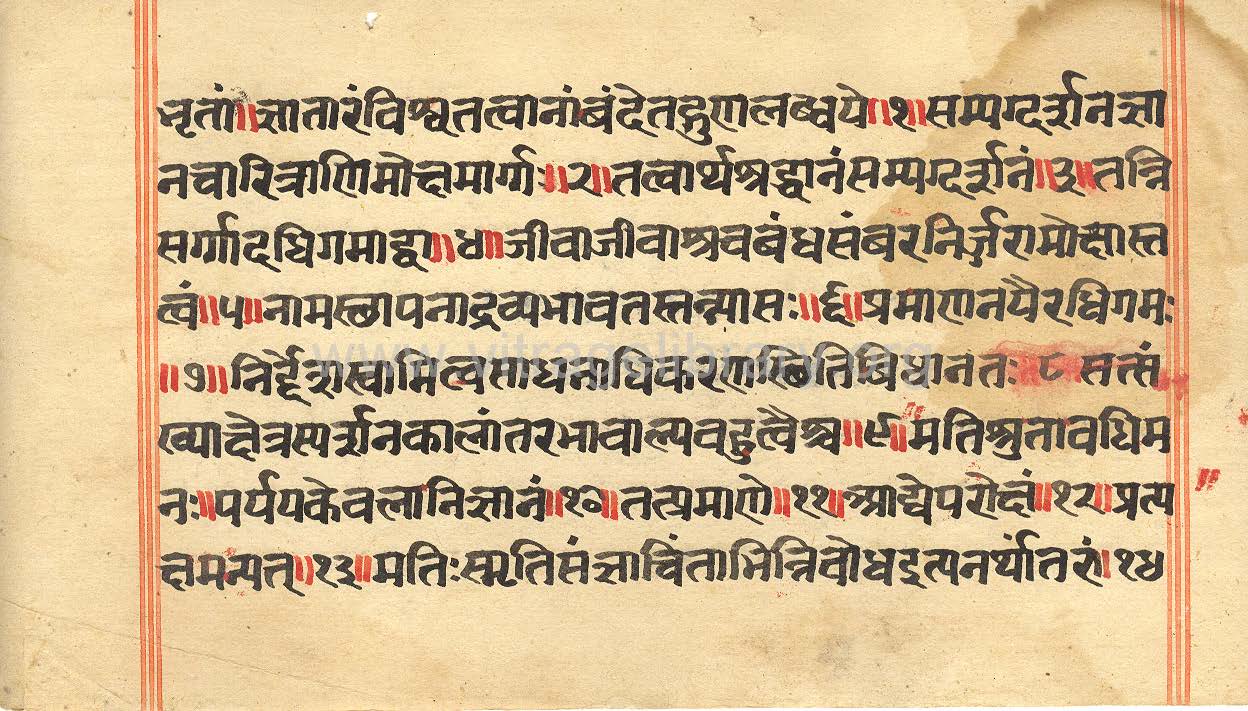 भृतां॥ज्ञातारंविश्वतत्वानांबंदेतद्गुणलब्धये॥१॥सम्यग्दर्शनज्ञा
नचारित्राणिमोक्षमार्गः॥२॥तत्वार्थश्रद्धानंसम्यग्दर्शनं॥३॥तन्नि
सर्गादधिगमाद्वा॥४॥जीवाजीवाश्रवबंधसंबरनिर्जरामोक्षास्त
त्वं॥५॥नामस्छापनाद्रव्यभावतस्तन्न्यासः॥६॥प्रमाणनयैरधिगमः
॥७॥निर्द्देशस्वामित्वसाधनाधिकरणस्छितिबिधानतः ८ सत्सं
ख्याक्षेत्रस्पर्शनकालांतरभावाल्पवहुत्वैश्च॥९॥मतिश्रुतावधिम
नः॥पर्ययकेवलानिज्ञानं॥१०॥तत्प्रमाणे॥११॥आद्येपरोक्षं॥१२॥प्रत्य॥
क्षमन्यत्॥१३॥मतिःस्मृतिसंज्ञाचिंताभिन्निवोधइत्यनर्थांतरुं।१४
www.vitragelibrary.org